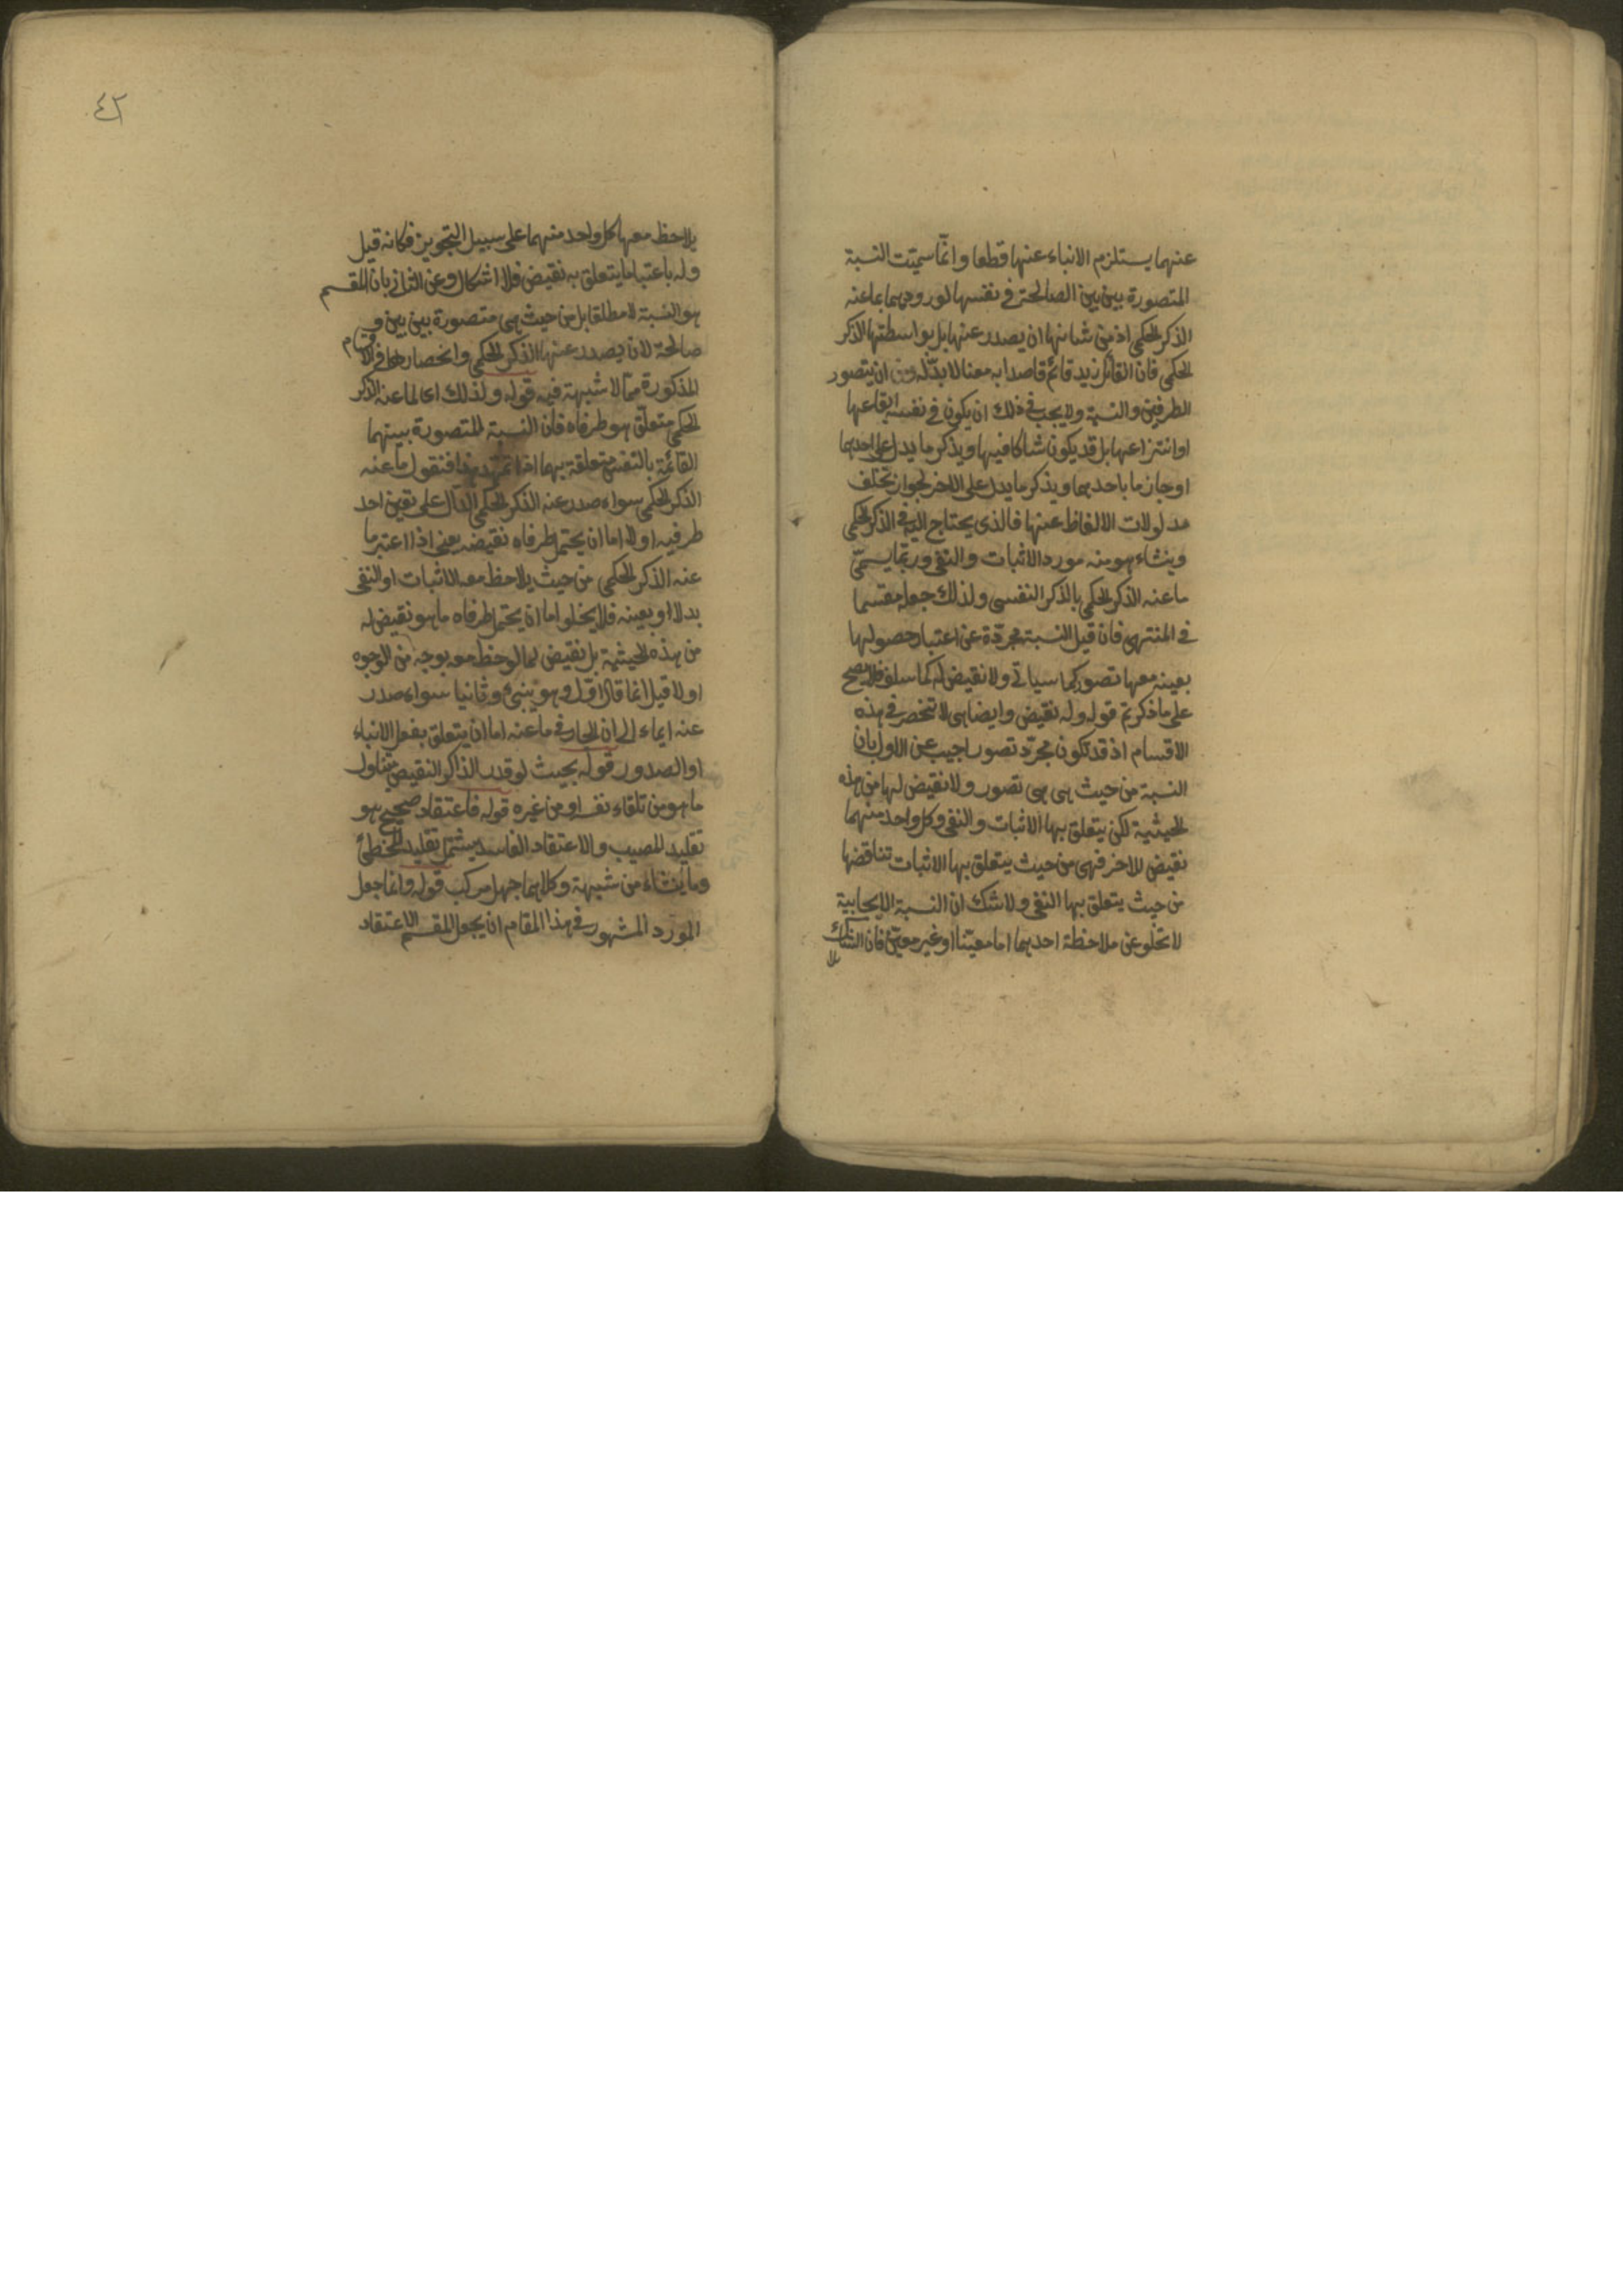 عنهما يستلزم الانباء عنها قطعا وانما سميت النسبة
المتصورة بين بين الصالحة في نفسها لورودهما بما عنه
الذكر الحكمي اذ من شانها ان يصدر عنها بل بواسطتها الذكر
الحكمي فان القائل زيد قائم قاصدا به معنا لا بد له من ان يتصور
الطرفين والنسبة ولا يجب في ذلك ان يكون في نفسه ايقاعها
او انتزاعها بل قد يكون شاكا فيها ويذكر ما يدل على احدهما
او جازما باحدهما ويذكر ما يدل على الاخر لجواز تخلف
مدلولات الالفاظ عنها فالذي يحتاج اليه في الذكر الحكمي
وينشاء هو منه مورد الاثبات والنفي وربما يسمى
ما عنه الذكر الحكمي بالذكر النفسي ولذلك جعله مقسما
في المنتهى فان قيل النسبة مجردة عن اعتبار حصولها
بعينه معها تصور كما سياتي ولا نقيض له كما سلف فلا يصح
على ما ذكرتم قوله وله نقيض وايضا هي لا تنحصر في هذه
الاقسام اذ قد تكون مجرد تصور اجيب عن الاول بان
النسبة من حيث هي هي تصور ولا نقيض لها من هذه
الحيثية لكن يتعلق بها الاثبات والنفي وكل واحد منهما
نقيض للاخر فهي من حيث يتعلق بها الاثبات تناقضها
من حيث يتعلق بها النفي ولا شك ان النسبة الايجابية
لا تخلو عن ملاحظة احدهما اما معينا او غير معين فان الشاك
٤٢
يلاحظ معها كل واحد منهما على سبيل التجويز فكانه قيل
وله باعتبار ما يتعلق به نقيض فلا اشكال وعن الثاني بان المقسم
هو النسبة لا مطلقا بل من حيث هي متصورة بين بين و
صالحة لان يصدر عنها الذكر الحكمي وانحصارها في الاقسام
المذكورة مما لا شبهة فيه قوله ولذلك اى لما عنه الذكر
الحكمي متعلق هو طرفاه فان النسبة المتصورة بينهما
القائمة بالنفس متعلقة بهما اذا تمهد هذا فنقول ما عنه
الذكر الحكمي سواء صدر عنه الذكر الحكمي الدال على تعين احد
طرفيه او لا اما ان يحتمل طرفاه نقيضه يعني اذا اعتبر ما
عنه الذكر الحكمي من حيث يلاحظ معه الاثبات او النفي
بدلا او بعينه فلا يخلو اما ان يحتمل طرفاه ما هو نقيض له
من هذه الحيثية بل نقيض لما لوحظ معه بوجه من الوجوه
او لا قيل انما قال اولا وهو ينبئ وثانيا سواء صدر
عنه ايماء الى ان الجار في ما عنه اما ان يتعلق بفعل الانباء
او الصدور قوله بحيث لو قدر الذاكر النقيض يتناول
ما هو من تلقاء نفسه او من غيره قوله فاعتقاد صحيح هو
تقليد المصيب والاعتقاد الفاسد يشتمل تقليد المخطئ
وما ينشاء من شبهة وكلاهما جهل مركب قوله وانما جعل
المورد المشهور في هذا المقام ان يجعل المقسم الاعتقاد